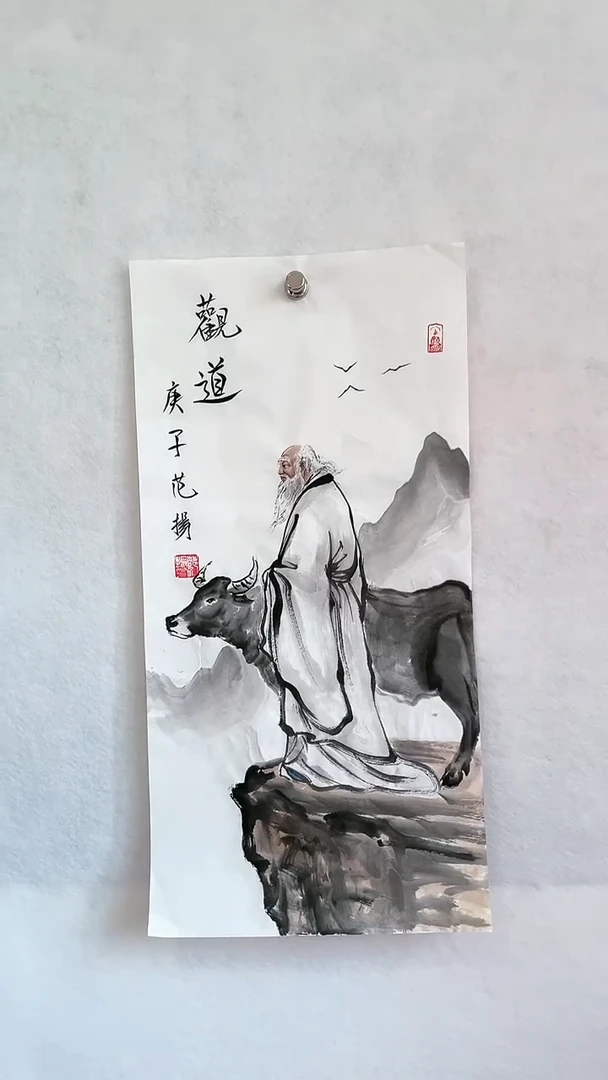 觀道
庚子范揚